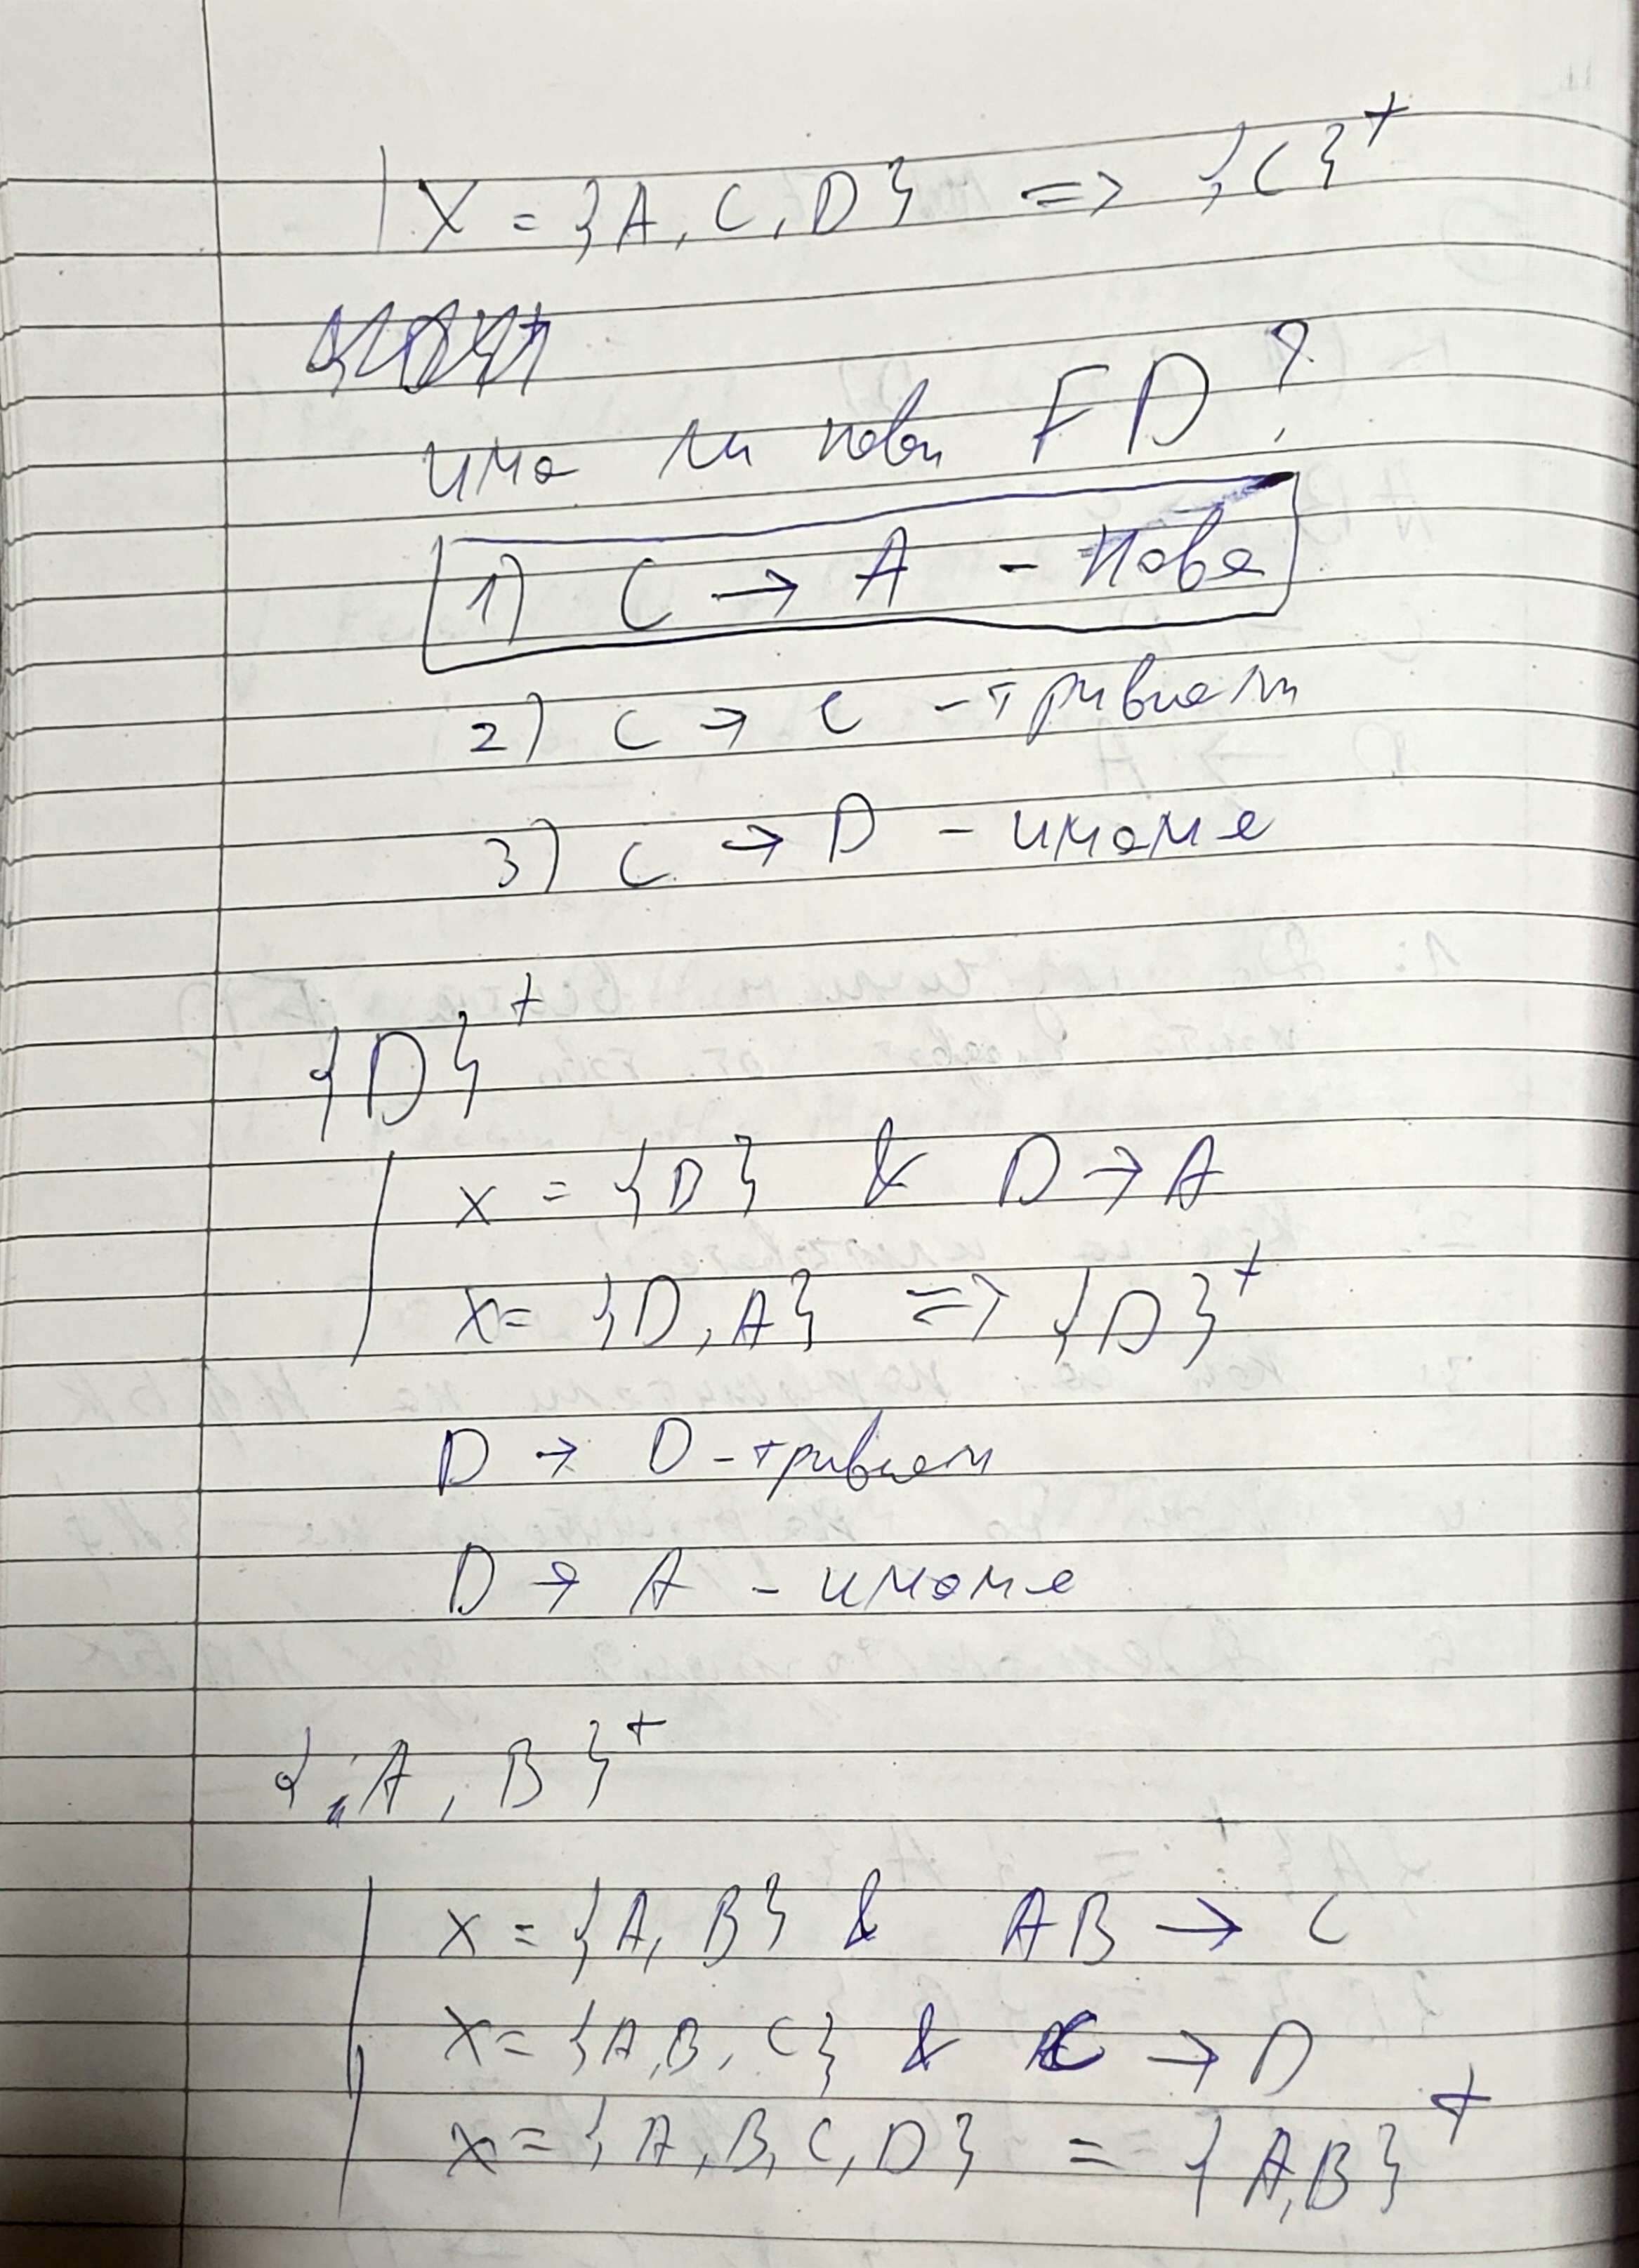 X = {A, C, D} => {C}⁺
има ли нови FD?
1) C → A - нова
2) C → C - тривиалн
3) C → D - имаме
{D}⁺
X = {D} & D → A
X = {D, A} => {D}⁺
D → D - тривиалн
D → A - имаме
{A, B}⁺
X = {A, B} & AB → C
X = {A, B, C} & C → D
X = {A, B, C, D} = {A, B}⁺